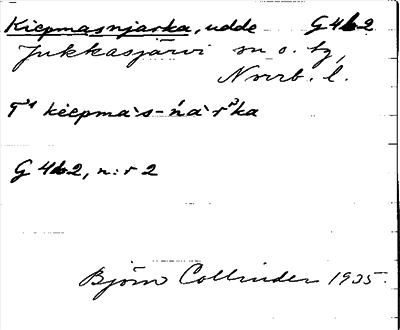 Kiepmasnjarka, udde G462
Jukkasjärvi sn o. tg,
Norrb. l.
kiepmàˈs-ńàˈrˀka
G 462, n:r 2
Björn Collinder 1935.